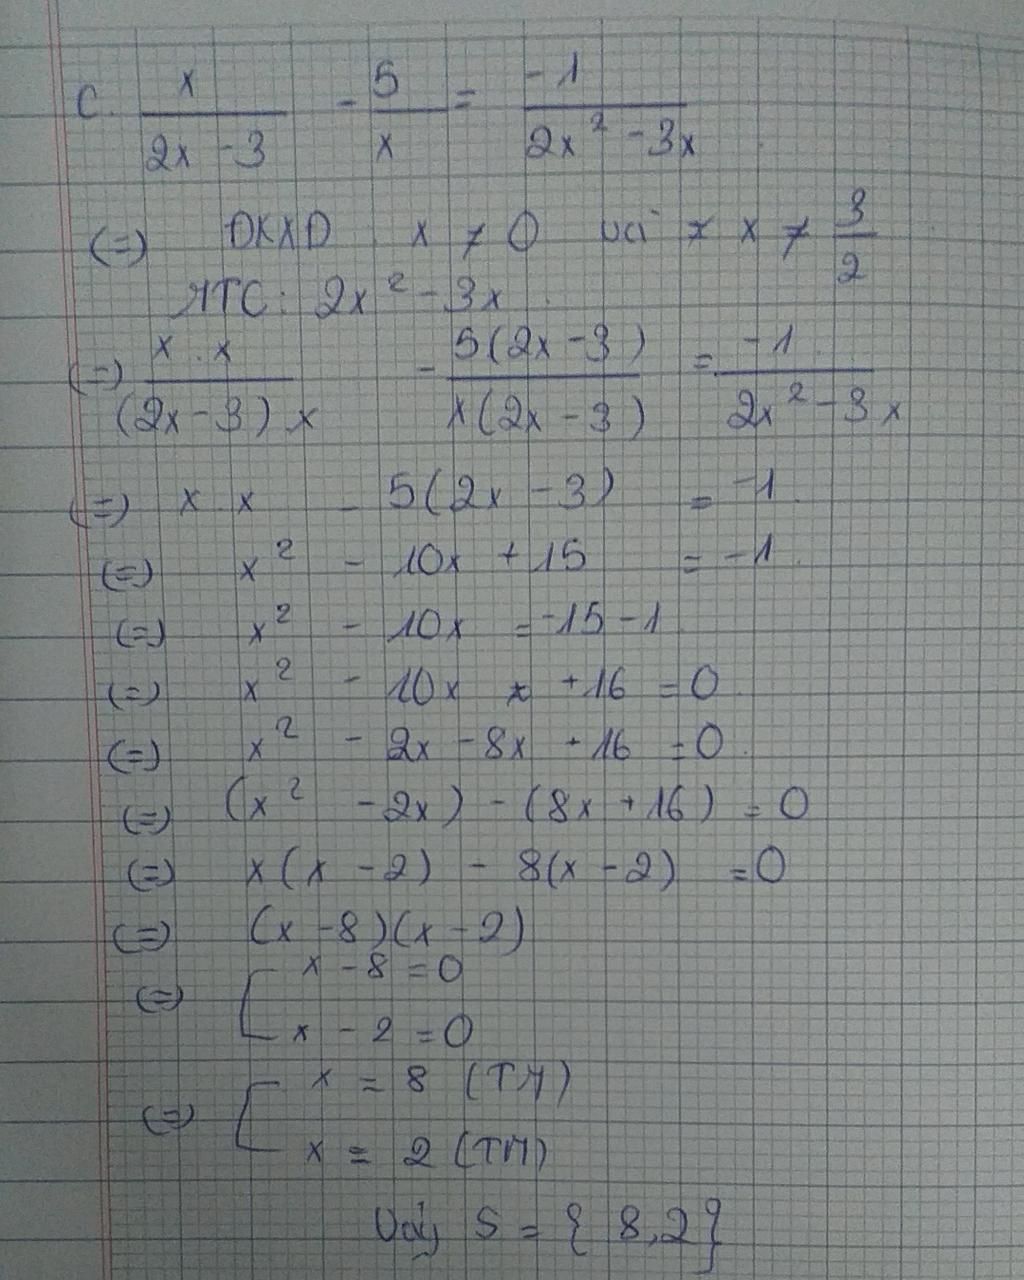 C. x/(2x - 3) - 5/x = -1/(2x² - 3x)
(=) ĐKXĐ x ≠ 0 và ≠ x ≠ 3/2
MTC: 2x² - 3x
(=) x.x/((2x - 3)x) - 5(2x - 3)/(x(2x - 3)) = -1/(2x² - 3x)
(=) x.x - 5(2x - 3) = -1
(=) x² - 10x + 15 = -1
(=) x² - 10x = -15 - 1
(=) x² - 10x + 16 = 0
(=) x² - 2x - 8x + 16 = 0
(=) (x² - 2x) - (8x + 16) = 0
(=) x(x - 2) - 8(x - 2) = 0
(=) (x - 8)(x - 2)
(=) [ x - 8 = 0
x - 2 = 0
(=) [ x = 8 (TM)
x = 2 (TM)
Vậy S = {8,2}